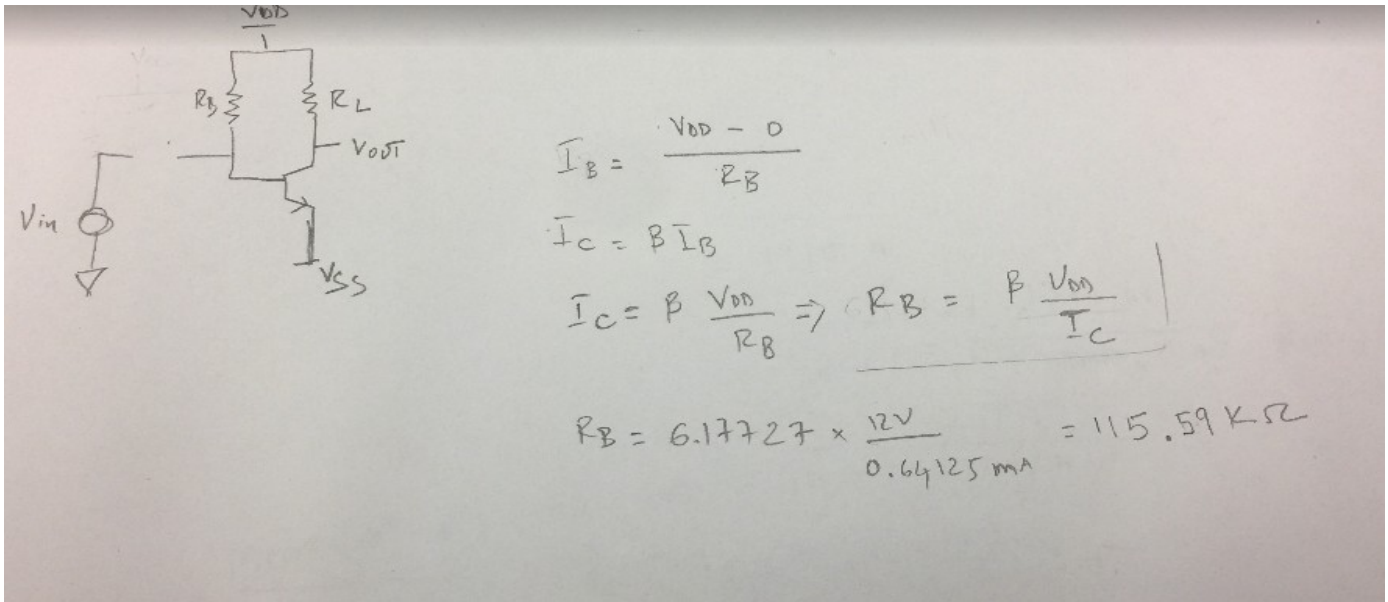 VDD
RB
RL
VOUT
Vin
VSS
IB = VDD - 0 / RB
IC = β IB
IC = β VDD / RB ⇒ RB = β VDD / IC
RB = 6.17727 × 12V / 0.64125 mA = 115.59 KΩ